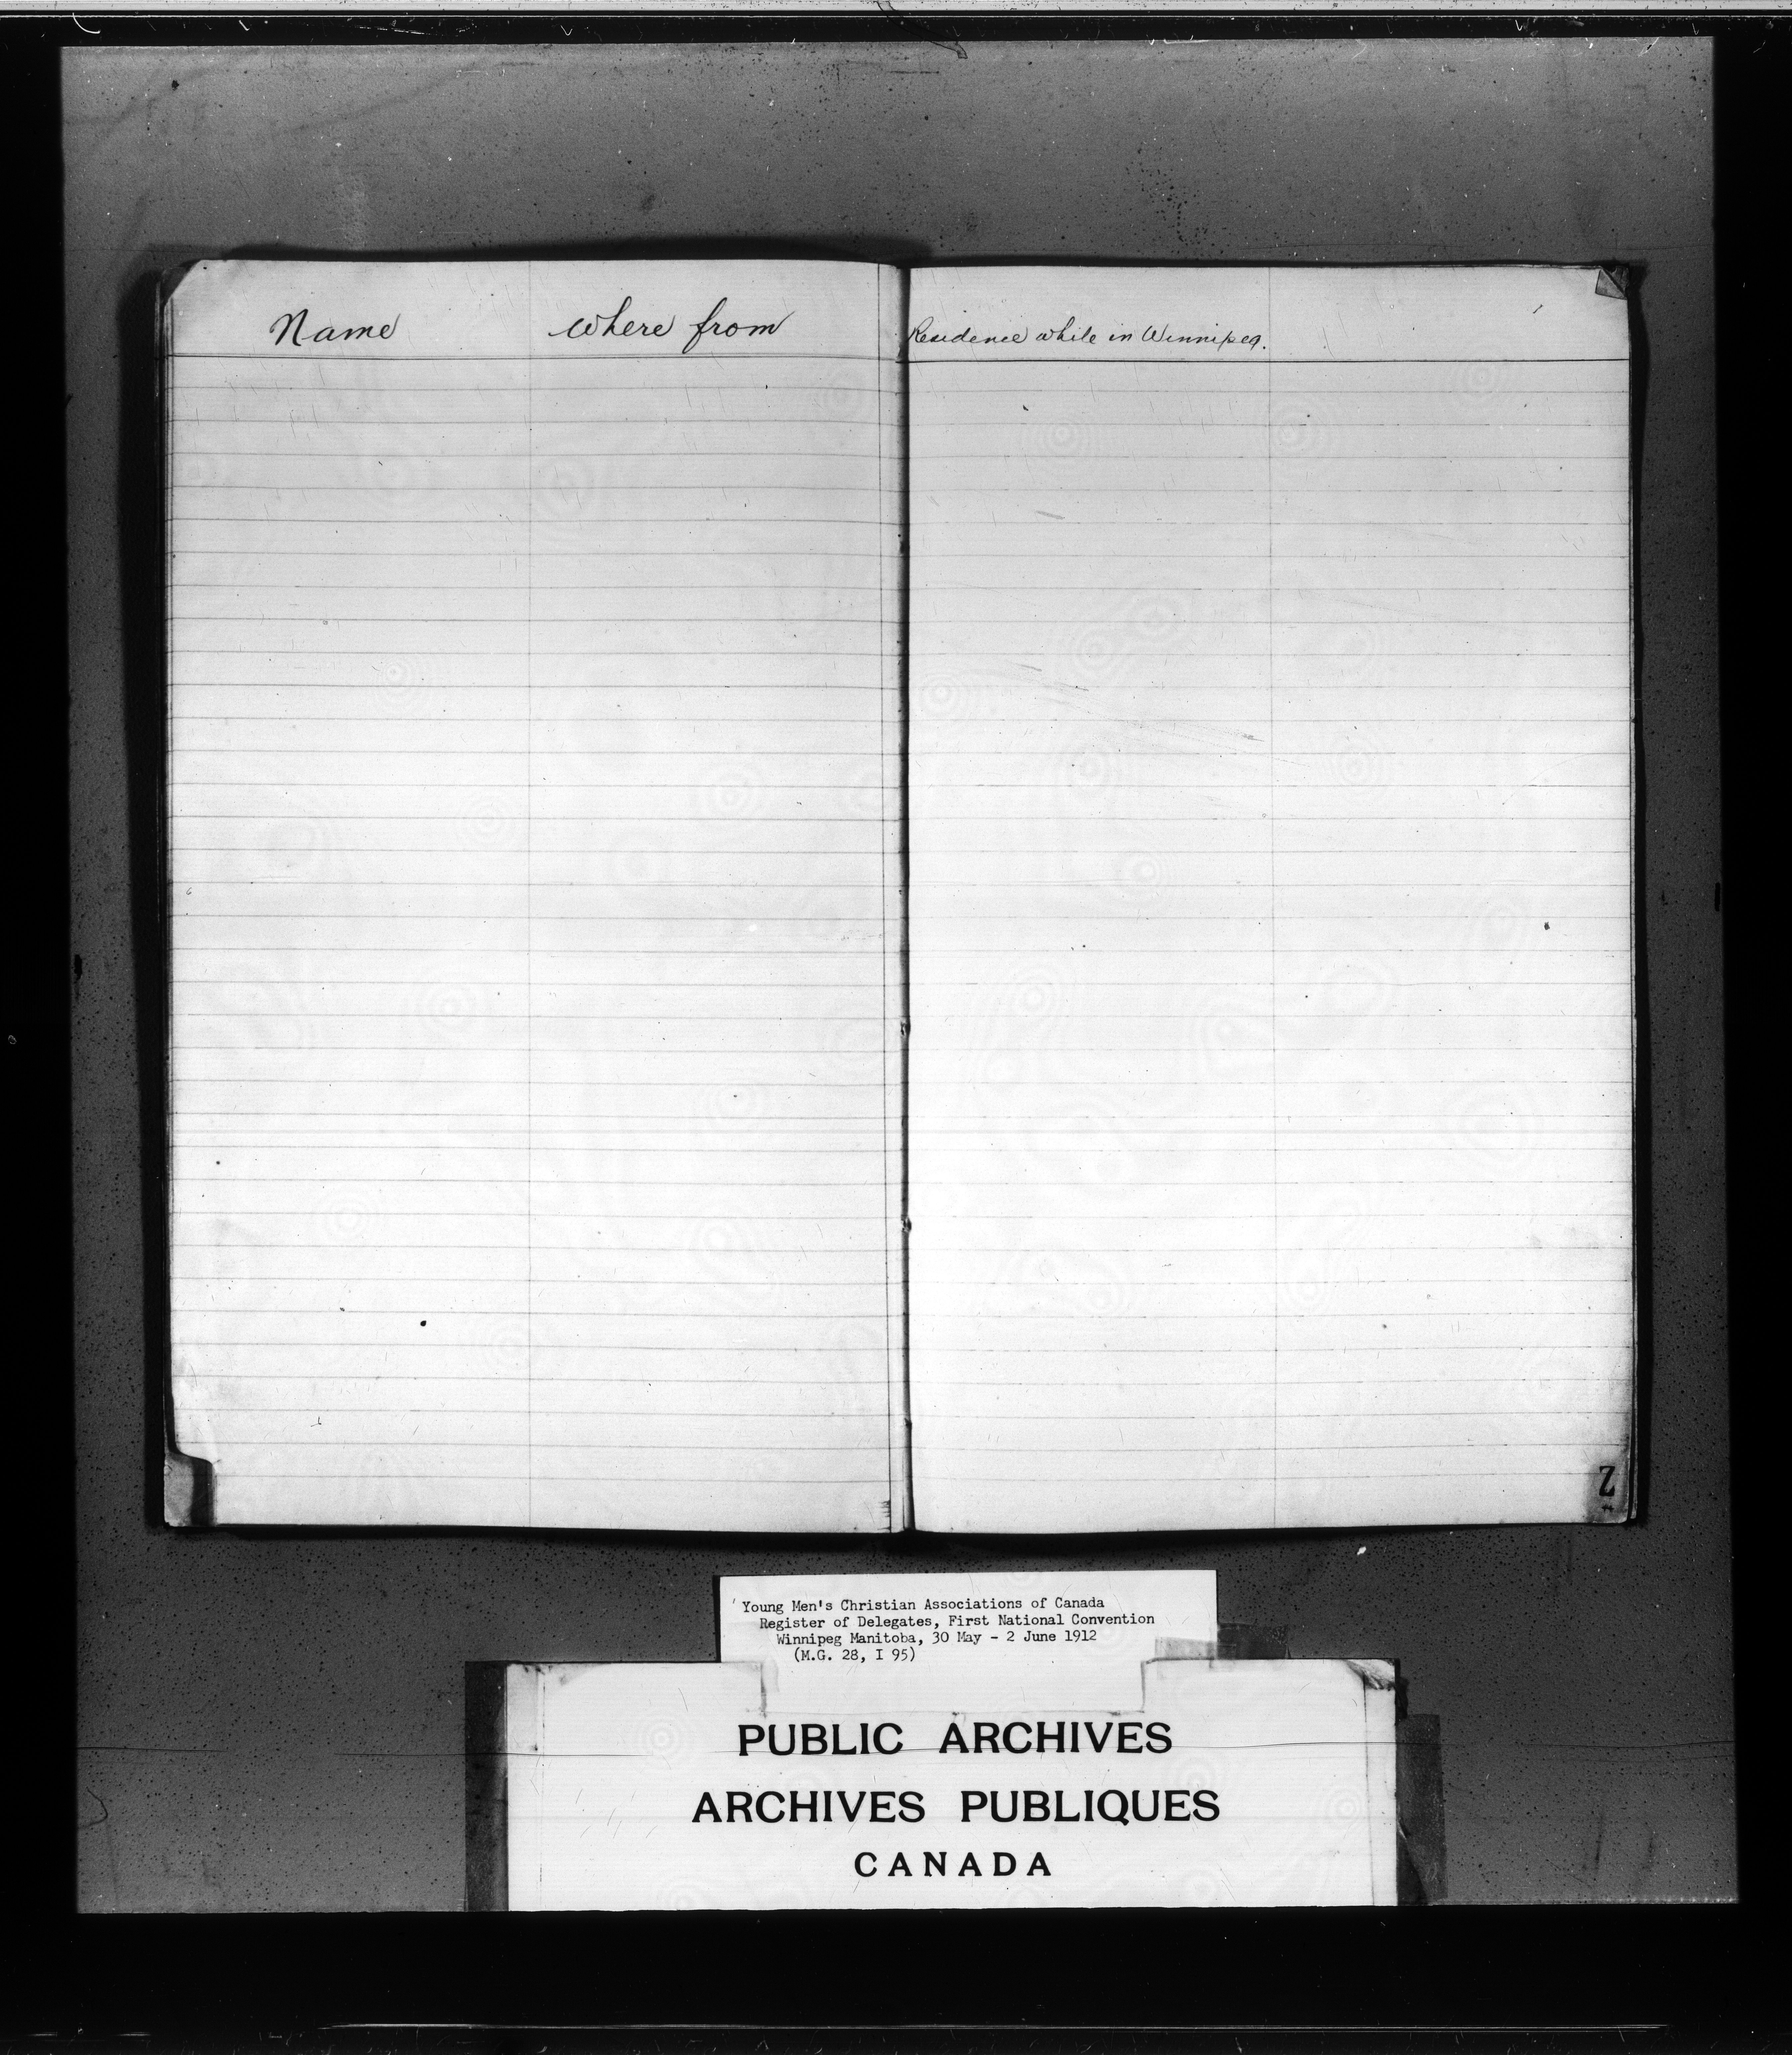 Name where from Residence while in Winnipeg.
Z
Young Men's Christian Associations of Canada
Register of Delegates, First National Convention
Winnipeg Manitoba, 30 May - 2 June 1912
(M.G. 28, I 95)
PUBLIC ARCHIVES
ARCHIVES PUBLIQUES
CANADA